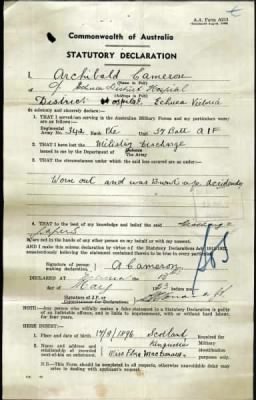 A.A. Form A213
Commonwealth of Australia
STATUTORY DECLARATION
I, Archibald Cameron
(Name in Full)
of Echuca District Hospital
(Address in Full)
District Hospital, Echuca Victoria
do solemnly and sincerely declare:
1. THAT I served/am serving in the Australian Military Forces and my particulars were/are
Regimental
Army No. 342 Rank Pte Unit 57 Batt A I F
2. THAT I have lost the Military Discharge
issued to me by the Department of Defence
The Army
3. THAT the circumstances under which the said loss occurred are as under:
Worn out and was Burnt up accidently
4. THAT to the best of my knowledge and belief the said Discharge
Papers
are not in the hands of any other person on my behalf or with my consent.
AND I make this solemn declaration by virtue of the Statutory Declarations Act
conscientiously believing the statements contained therein to be true in every particular.
Signature of person making declaration: A Cameron
DECLARED AT Echuca
May 53 before me
Signature of J.P. or
Commissioner for Declarations
NOTE.—Any person who wilfully makes a false statement in a Statutory Declaration is guilty of an indictable offence, and is liable to imprisonment, with or without hard labour, for four years.
HERE INSERT:
1. Place and date of birth 14/9/1896 Scotland
2. Name and address
relationship of recorded
next-of-kin on enlistment
Miss Edna MacDonald
Required for
Military
Identification
purposes only.
N.B.—This Form should be completed in all respects, otherwise unavoidable delay may arise in dealing with applicant's request.